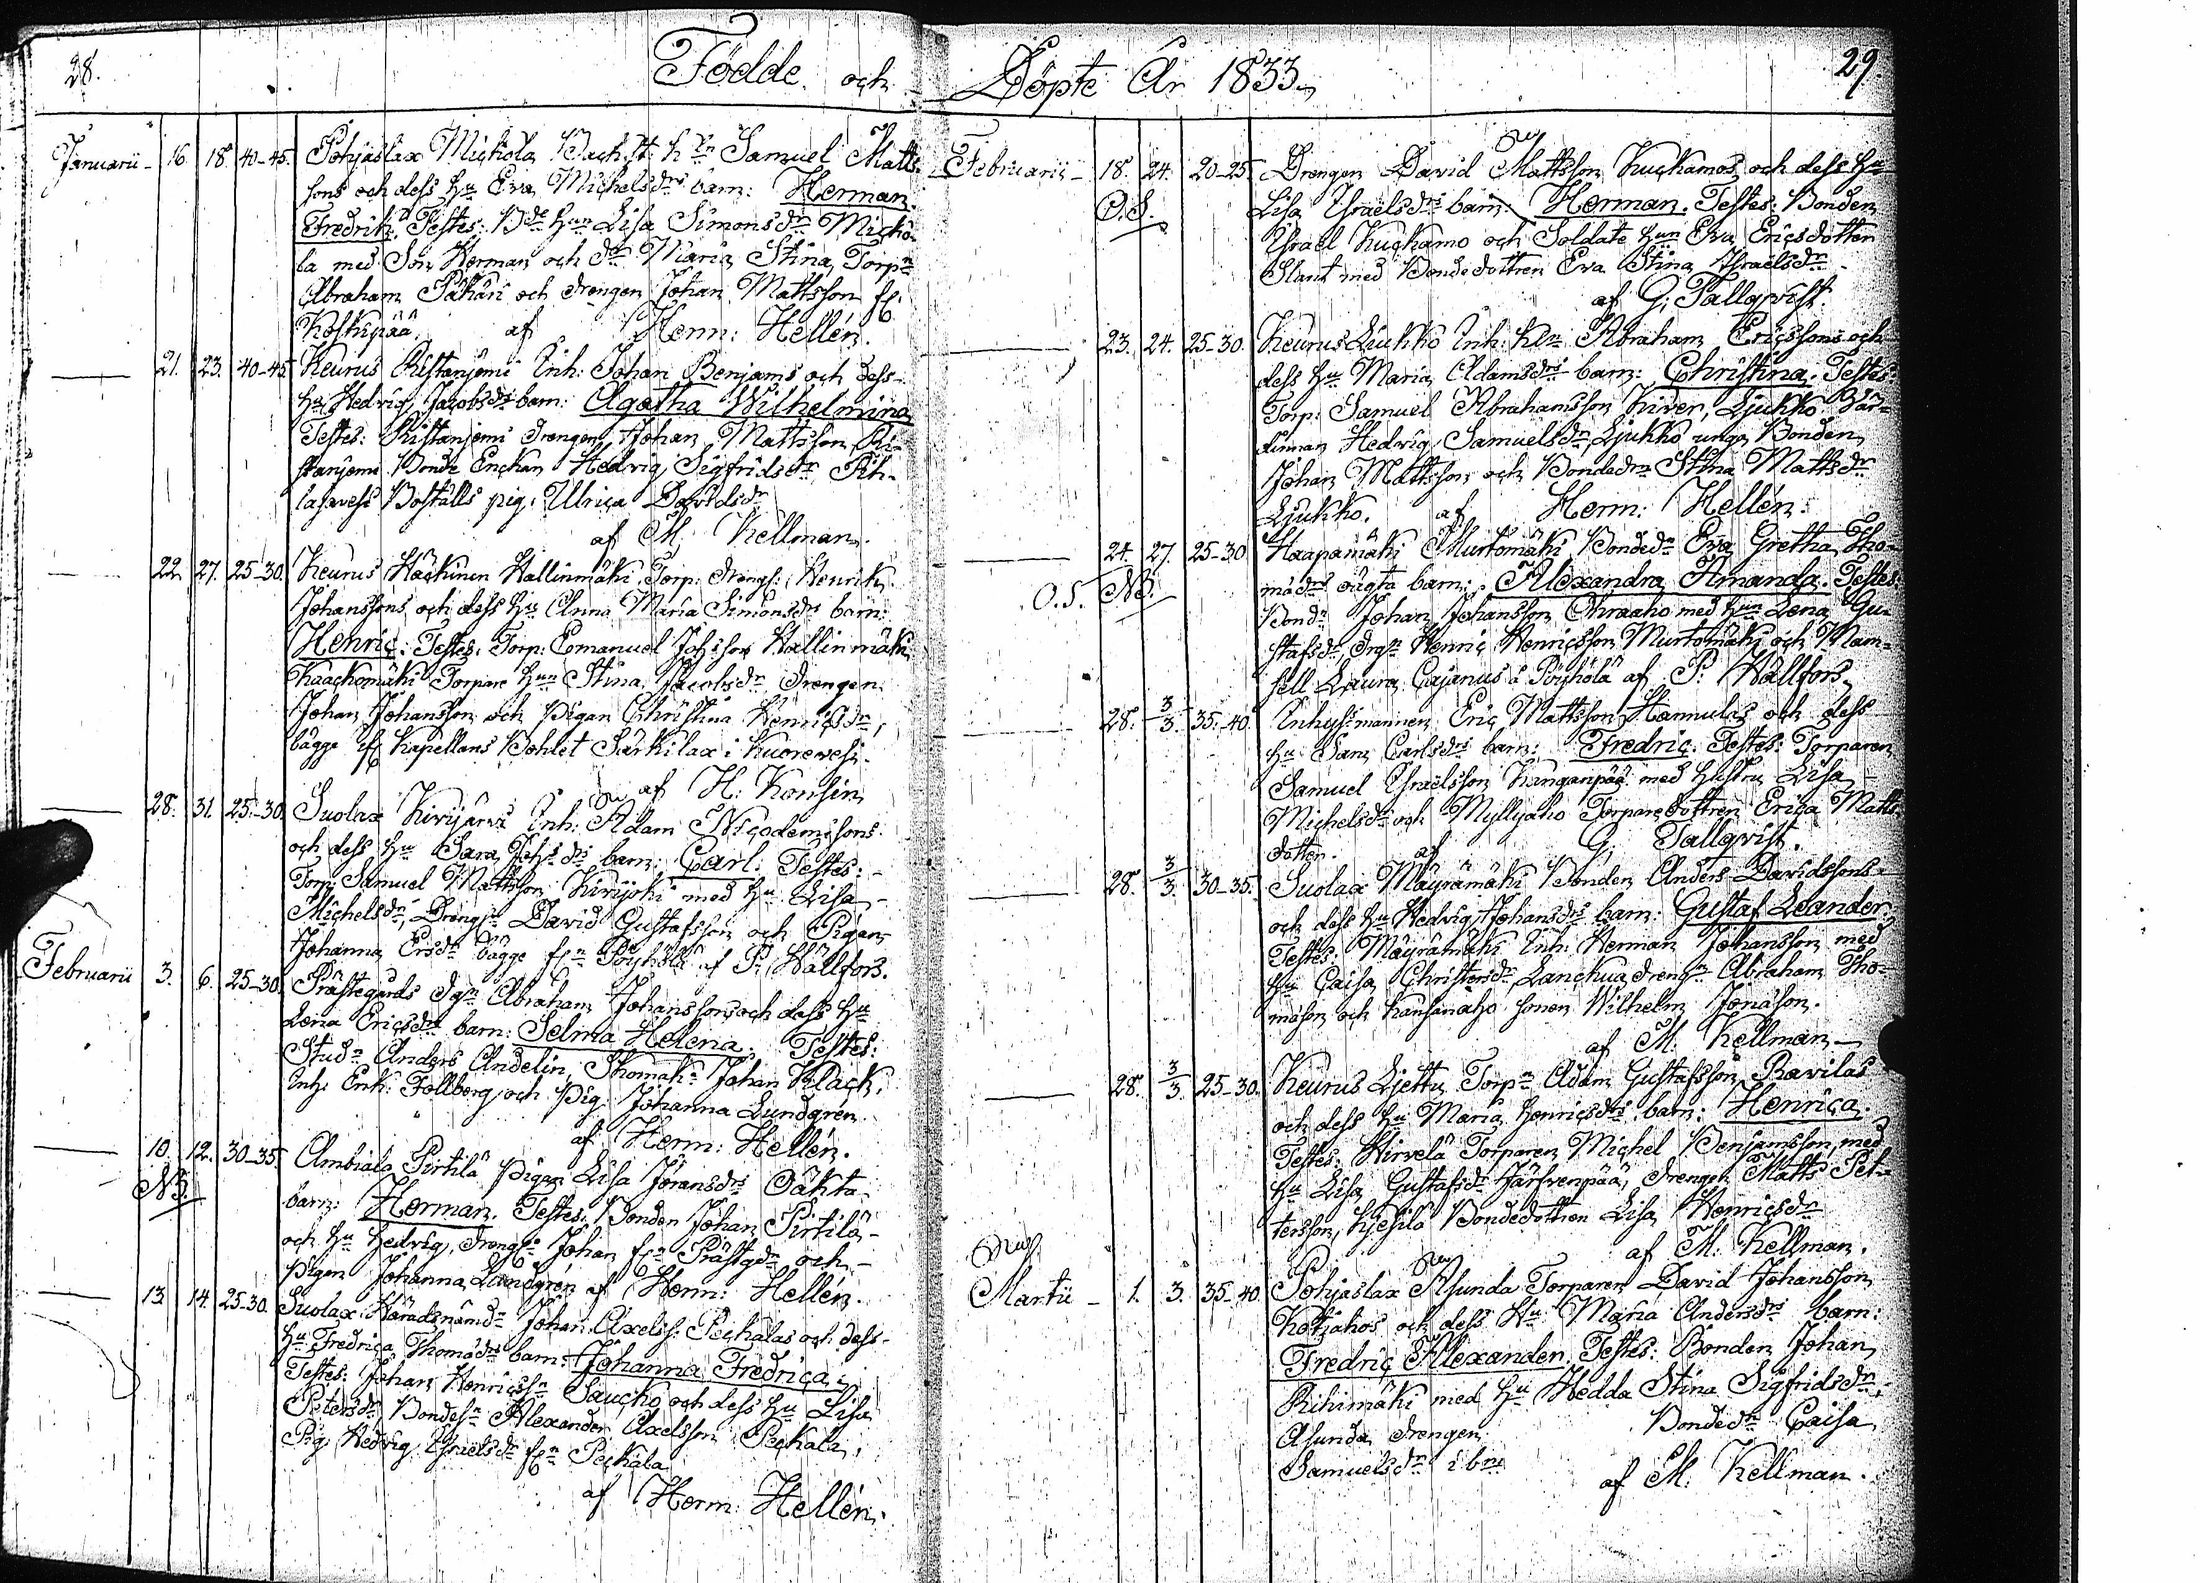 28.
Födde och
Januarii - 16. 18. 40-45. Pohjaslax Michola Samuel Matts-
sons och dess hu Eva Michelsdrs barn: Herman
Fredrik. Testes: Bde hun Lisa Simonsdr Micho-
la med Son Herman och dr Maria Stina, Torpn
Abraham och drengen Johan Mattsson fr.
Koskipää. af Herm: Hellén.
21. 23. 40-45 Keurus Ristanjemi Inh: Johan Benjams och dess
hu Hedvig Jacobsdrs barn: Agatha Wilhelmina
Testes: Ristanjemi drengen Johan Mattsson, Ri-
stanjemi Bonde Enckan Hedvig Sigfridsdr, Pih-
lajavesi Boställs pig. Ulrica Davidsdr
af M. Kellman.
22. 27. 25-30. Keurus Häckinen Hallinmäki Torp: drengs: Henrik
Johanssons och dess hu Anna Maria Simonsdrs barn:
Henric. Testes: Torp: Emanuel Johsson Hallinmäki
Kaackomäki Torpare hun Stina Jacobsdr drengen
Johan Johansson och Pigan Christina Henricsdr,
bägge fr Kapellans Bohlet Särkilax i Kuorevesi.
af H: Konsin
28. 31. 25-30. Suolax Kirvijärvi Inh: Adam Nicodemssons
och dess hu Sara Johsdrs barn: Carl. Testes:
Torp: Samuel Mattsson Kirrijoki med hu Lisa
Michelsdr, Drengn David Gustafsson och Pigan
Johanna Ersdr bägge frn Pöyhölä af P: Hällfors.
Februarii 3. 6. 25-30. Prästegårds dgn Abraham Johanssons och dess hu
Lena Ericsdrs barn: Selma Helena. Testes:
Studn Anders Andelin, Skomakn Johan Klack,
Inh: Enk: Follberg och Pig: Johanna Lundgren
af Herm: Hellén.
10. 12. 30-35. Ambiala Pirtilä Pigan Lisa Jöransdrs Oäkta
NB.
barn: Herman. Testes: Bonden Johan Pirtilä
och hu Hedvig, drengn Johan frn Prästgdn och
pigan Johanna Lundgrén af Herm: Hellén.
13. 14. 25-30. Suolax Häradsnämdn Johan Axelss: Peckalas och dess
hu Fredrica Thomædrs barn: Johanna Fredrica.
Testes: Johan Henricssn Saucko och dess hu Lisa
Petersdr, Bondesn Alexander Axelsson Peckala,
Pig: Hedvig Israelsdr frn Peckala
af Herm: Hellén.
29.
Döpte År 1833.
Februarii - 18. 24. 20-25. Drengen David Mattsson Kuckamos och dess hu
O.S.
Lisa Israelsdrs barn: Herman. Testes: Bonden
Israel Kuckamo och Soldate hun Eva Ericsdotter
Slant med Bondedottren Eva Stina Israelsdr
af G: Tallqvist.
23. 24. 25-30. Keurus Liukko Inh: Abraham Ericssons och
dess hu Maria Adamsdrs barn: Christina. Testes:
Torp: Samuel Abrahamsson Kiver, Ljukko Vär-
dinnan Hedvig Samuelsdr, Ljukko unga Bonden
Johan Mattsson och Bondedrn Stina Mattsdr
Ljukko. af Herm: Hellén.
24. 27. 25-30 Haapamäki Murtomäki Bondedn Eva Gretha Tho-
O.S. NB.
mædrs oägta barn: Alexandra Amanda. Testes:
Bondn Johan Johansson Ahraaho med hun Lena Gu-
stafsdr, drgn Henric Henricsson Murtomäki och Mam-
sell Laura Cajanus å Pöyhölä af P: Hällfors.
28. 3/3. 35-40. Inhysmannen Eric Mattsson Hannulas och dess
hu Sara Carlsdrs barn: Fredric. Testes: Torparen
Samuel Israelsson Kanganpää med hustru Lisa
Michelsdr och Myllyaho Torparedottren Erica Matts
dotter. af G: Tallqvist.
28. 3/3. 30-35. Suolax Mäyrämäki Bonden Anders Davidssons
och dess hu Hedvig Johansdrs barn: Gustaf Leander.
Testes: Mäyrämäki Inh: Herman Johansson med
hu Caisa Christersdr, Lanckua drengn Abraham Tho-
mæson och Kansanaho sonen Wilhelm Jonæson.
af M: Kellman
28. 3/3. 25-30. Keurus Ljettu Torpn Adam Gustafsson Ravilas
och dess hu Maria Henricsdrs barn: Henrica.
Testes: Hirvelä Torparen Michel Benjamsson med
hu Lisa Gustafsdr Järfvenpää, drengen Matts Pet-
tersson, Bondedottren Lisa Henricsdr
af M: Kellman.
Martii - 1. 3. 35-40 Pohjaslax Asunda Torparen David Johansson
Kotjahos och dess Hu Maria Andersdrs barn:
Fredric Alexander. Testes: Bonden Johan
Rihimäki med hu Hedda Stina Sigfridsdr,
Asunda drengen Bondedr Caisa
Samuelsdr i bm
af M: Kellman.